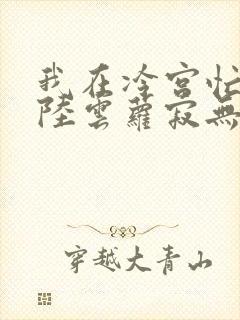 我在冷宮忙
陸雲蘿寂無
穿越大青山